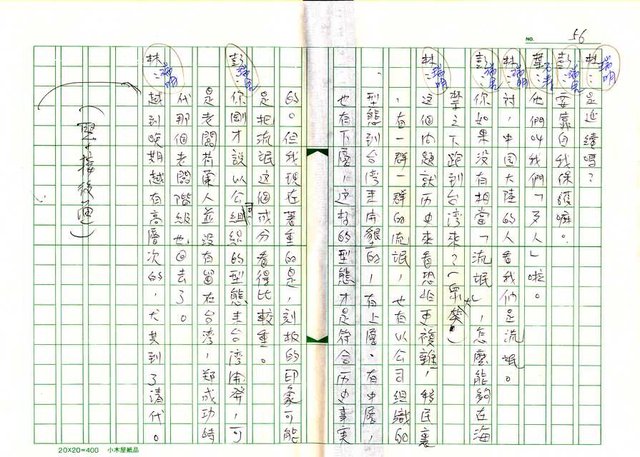 NO. 56
林瑞明：是延續嗎？
彭瑞金：要靠自我保護嘛。
葉石濤：他們叫我們「歹人」啦。
林瑞明：對，中國大陸的人看我們是流氓。
彭瑞金：你如果沒有相當「流氓」，怎麼能夠在海
禁之下跑到台湾來？（眾笑）
林瑞明：這個問題就历史來看恐怕更複雜，移民裏
，有一群一群的流氓，也有以公司組織的
型態到台湾来開墾的，有上層，有中層，
也有下層，這樣的型態才是符合历史事實
的。但我現在著重的是，刻板的印象可能
是把流氓這個成分看得比較重。
彭瑞金：你剛才說以公司組織的型態來台湾開發，可
是老闆有人並沒有留在台湾，鄭成功時
代那個老闆階級也回去了。
林瑞明：越到晚期越有高層次的，尤其到了清代。
接後
20×20=400 小木屋紙品